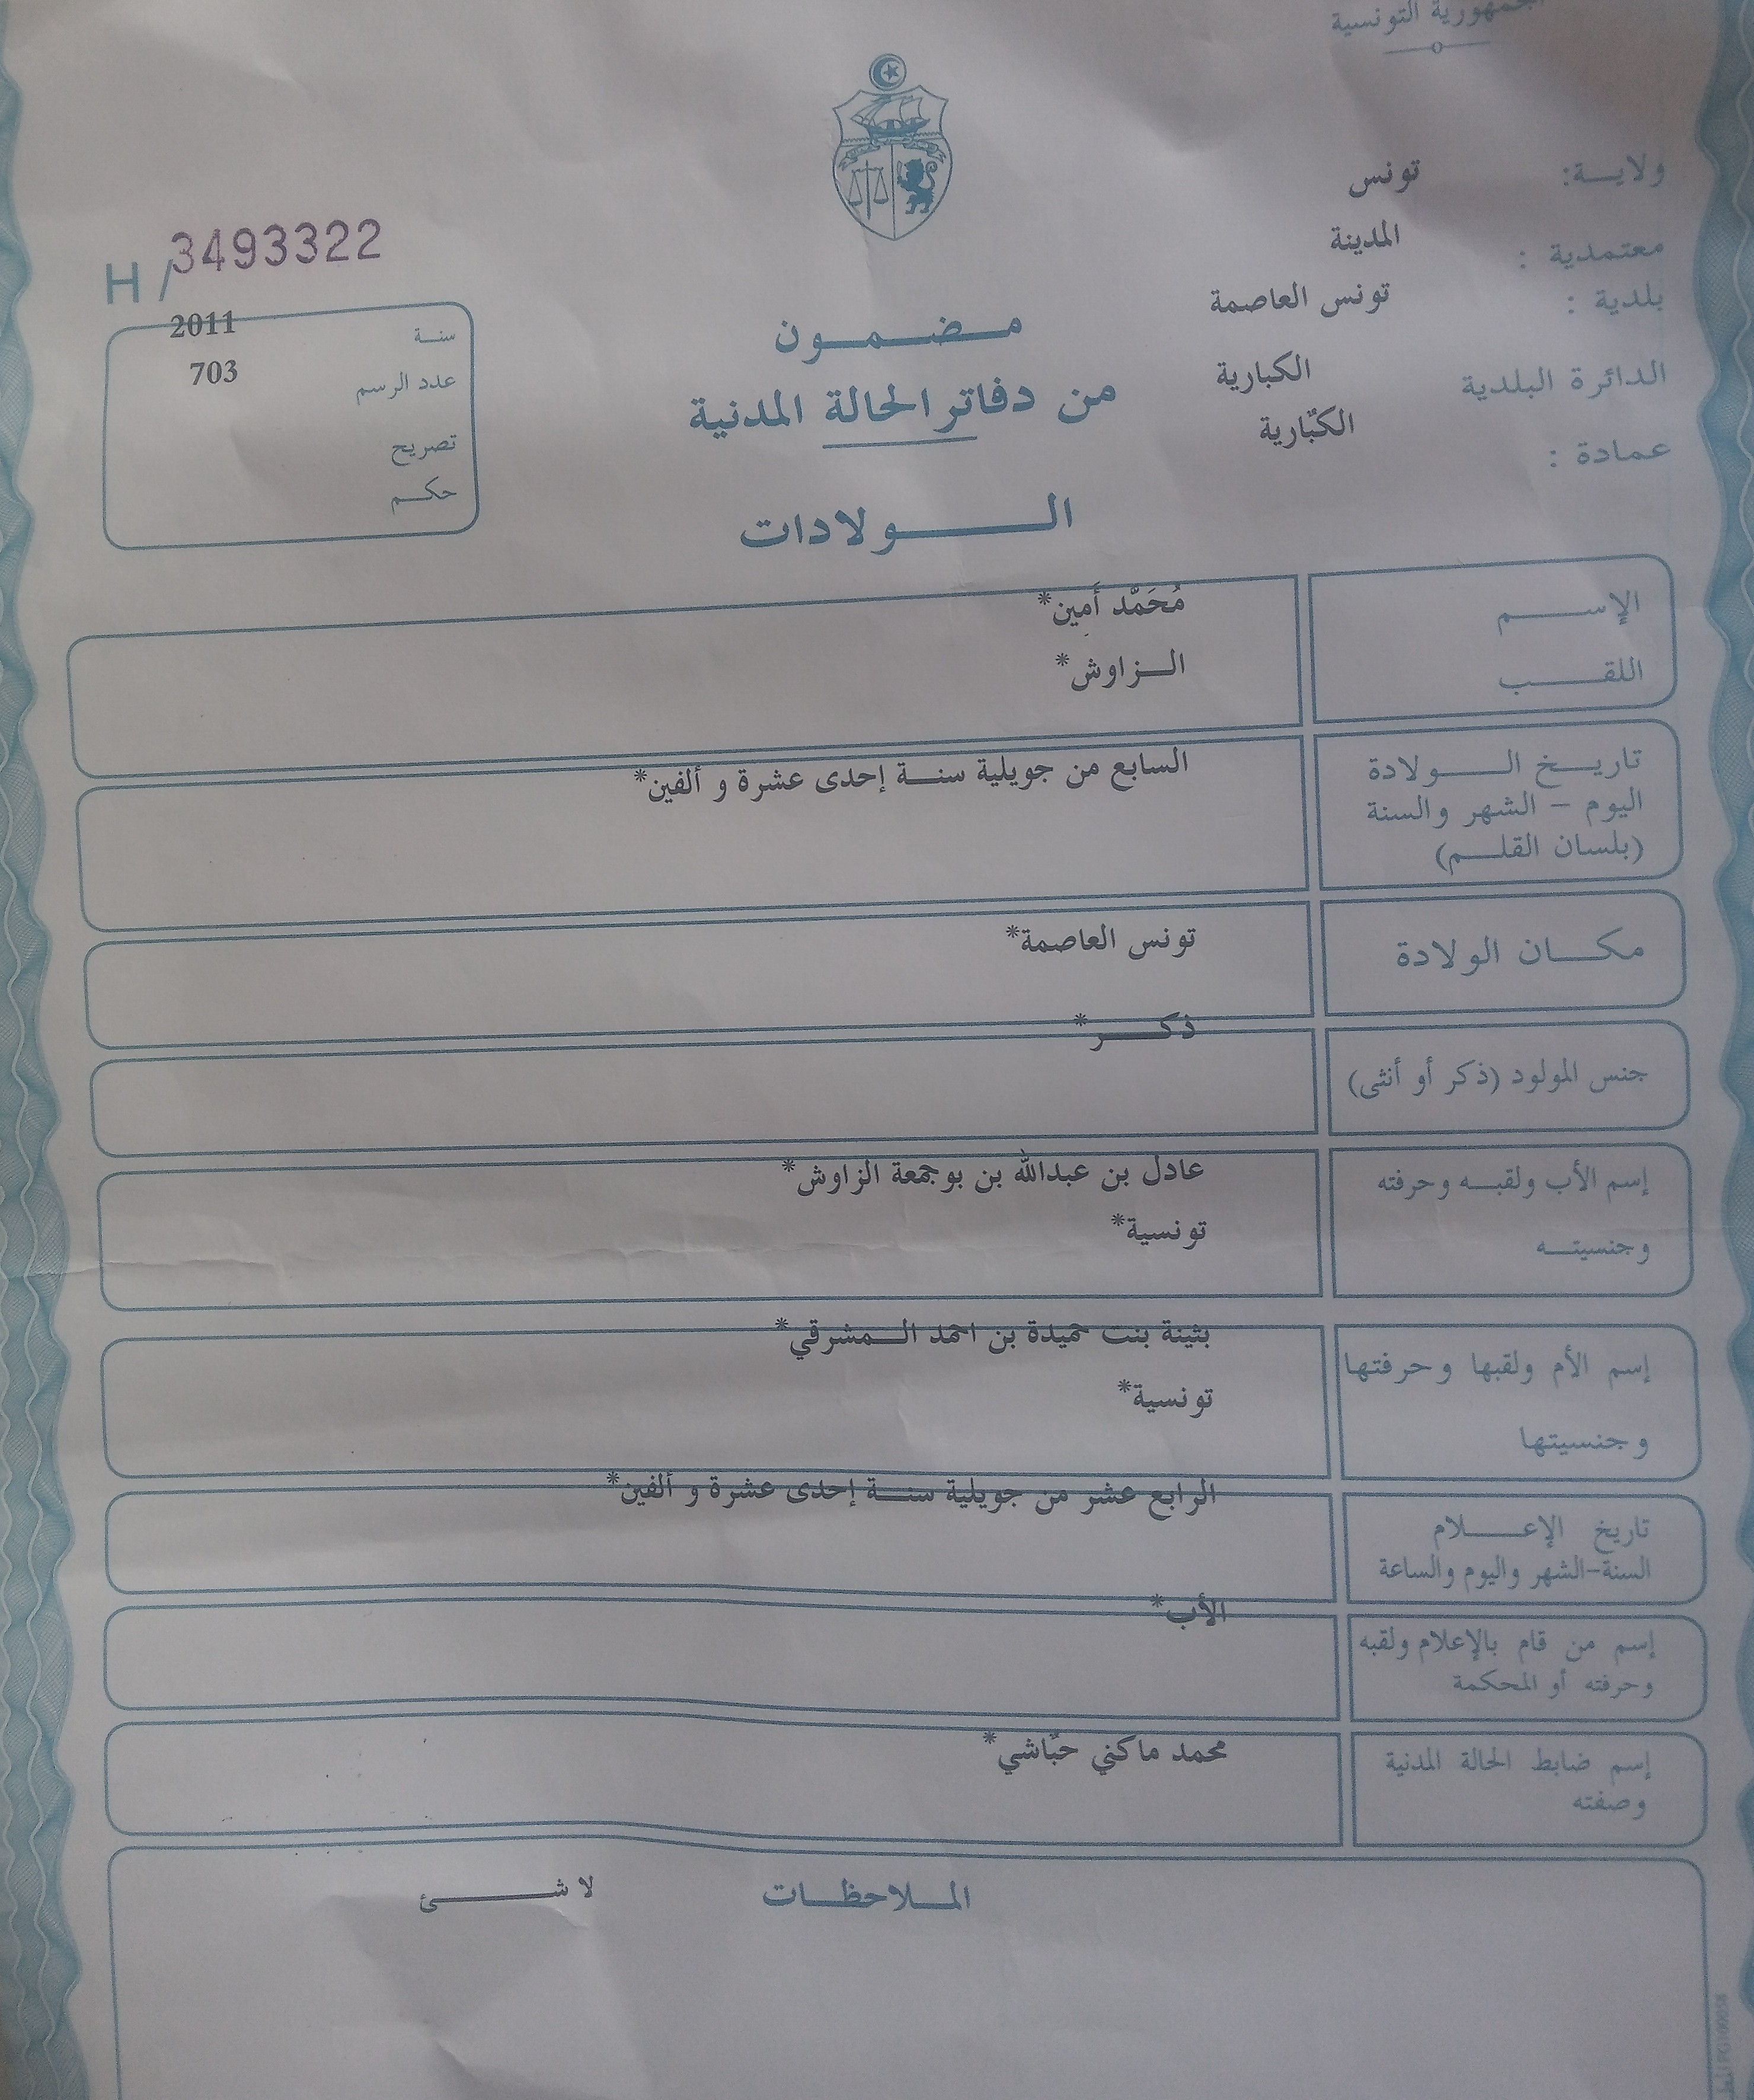 الجمهورية التونسية
ولايـــة: تونس
معتمدية : المدينة
بلدية : تونس العاصمة
الدائرة البلدية الكبارية
عمادة : الكبّارية
H / 3493322
سنـة 2011
عدد الرسم 703
تصريح
حكـــم
مـــضـــمـــون
من دفاتر الحالة المدنية
الـــــولادات
الإســـــم مُحَمَّد أَمين*
اللقـــــب الـــزاوش*
تاريـــخ الـــــولادة السابع من جويلية سنـــة إحدى عشرة و ألفين*
اليوم – الشهر والسنة
(بلسان القلـــم)
مكـــان الولادة تونس العاصمة*
جنس المولود (ذكر أو أنثى) ذكـــر*
إسم الأب ولقبـــه وحرفته عادل بن عبدالله بن بوجمعة الزاوش*
وجنسيتـــه تونسية*
إسم الأم ولقبها وحرفتها بثينة بنت حميدة بن احمد الـــمشرقي*
وجنسيتها تونسية*
تاريخ الإعـــــلام الرابع عشر من جويلية سنـــة إحدى عشرة و ألفين*
السنة-الشهر واليوم والساعة
إسم من قام بالإعلام ولقبه الأب*
وحرفته أو المحكمة
إسم ضابط الحالة المدنية محمد ماكني حبّاشي*
وصفته
المـــلاحظـــات لا شـــــئ